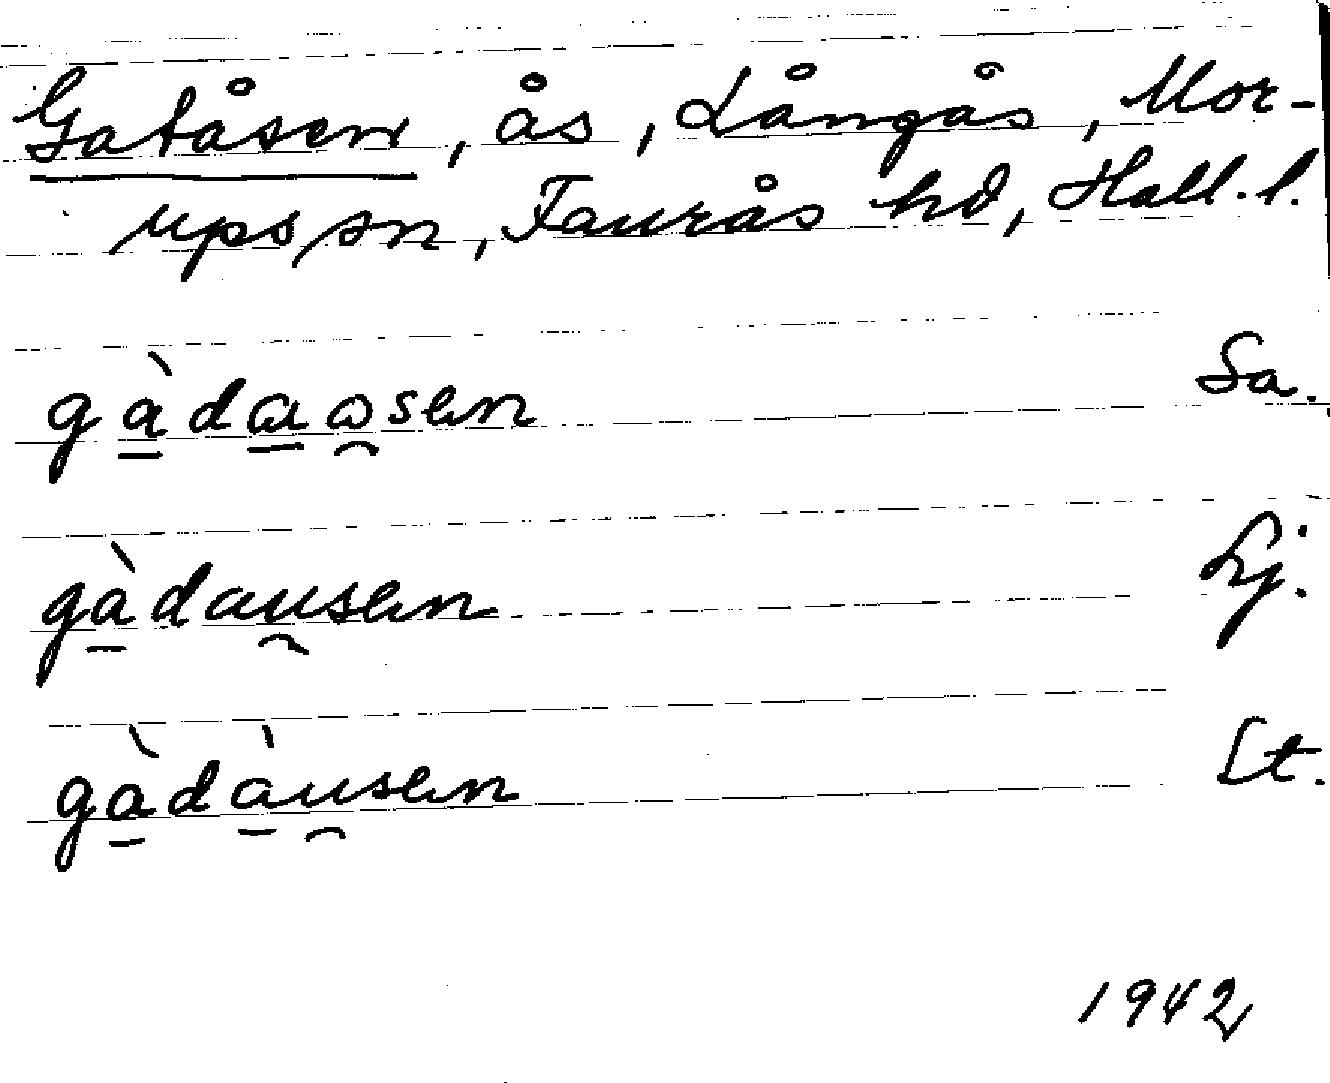 Gatåsen, ås, Långås, Mor-
ups sn, Faurås hd, Hall. l.
gàdaɷsen Sa.
gàdausen Lj.
gàdàusen St.
1942